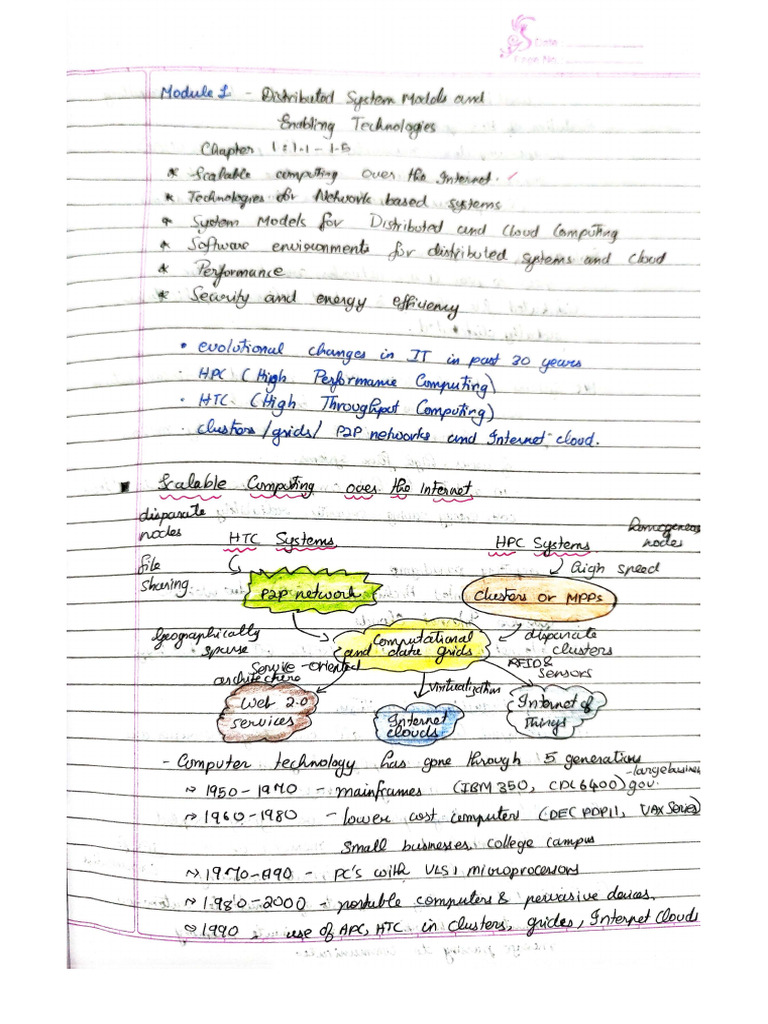 Date
Page No.
Module 1 - Distributed System Models and
Enabling Technologies
Chapter 1: 1.1 - 1.5
* Scalable computing over the Internet. ✓
* Technologies for Network based systems
* System Models for Distributed and Cloud Computing
* Software environments for distributed systems and cloud
* Performance
* Security and energy efficiency
• evolutional changes in IT in past 30 years
• HPC (High Performance Computing)
• HTC (High Throughput Computing)
• clusters/grids/ P2P networks and Internet cloud.
Scalable Computing over the Internet
disparate
nodes
HTC Systems
HPC Systems
homogeneous
nodes
file
sharing
High speed
P2P network
Clusters or MPPs
Geographically
sparse
Computational
and data grids
disparate
clusters
Service-oriented
architecture
Virtualization
RFID &
sensors
Web 2.0
services
Internet
clouds
Internet of
Things
- Computer technology has gone through 5 generations
~> 1950 - 1970 - mainframes (IBM 350, CDC 6400) - large business gov.
~> 1960 - 1980 - lower cost computer (DEC PDP11, VAX Series)
Small businesses, college campus
~> 1970 - 1990 - PC's with VLSI microprocessors
~> 1980 - 2000 - portable computers & pervasive devices.
~> 1990, use of HPC, HTC in clusters, grides, Internet Clouds